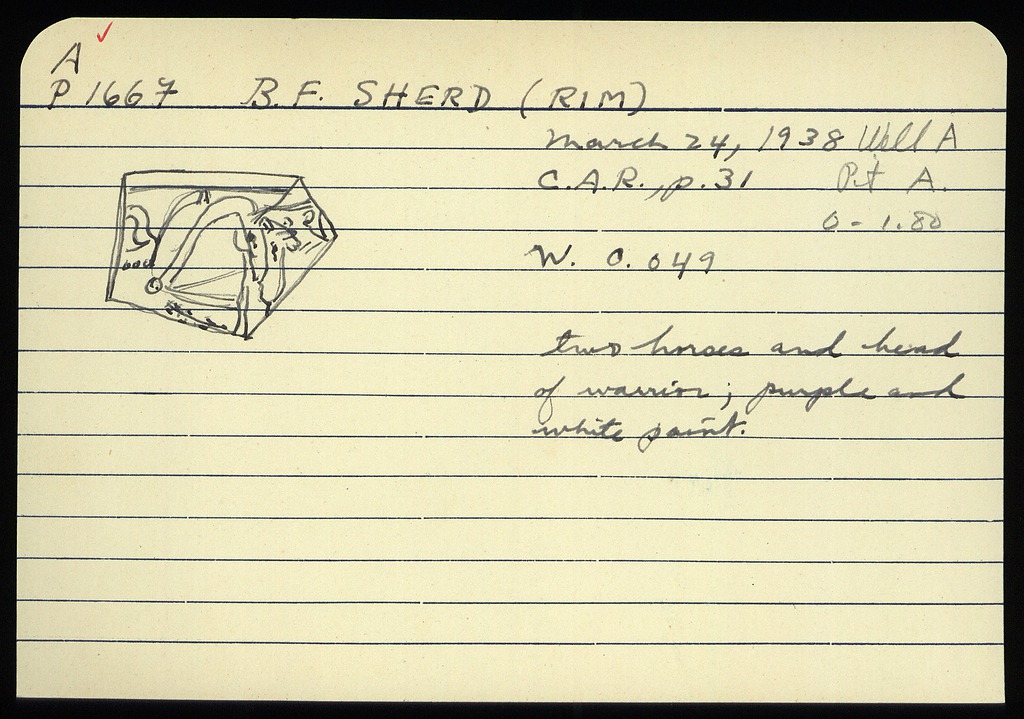 A ✓
P 1667 B.F. SHERD (RIM)
March 24, 1938 Well A
C.A.R., p. 31 Pit A.
0 - 1.80
W. 0.049
two horses and head
of warrior; purple and
white paint.